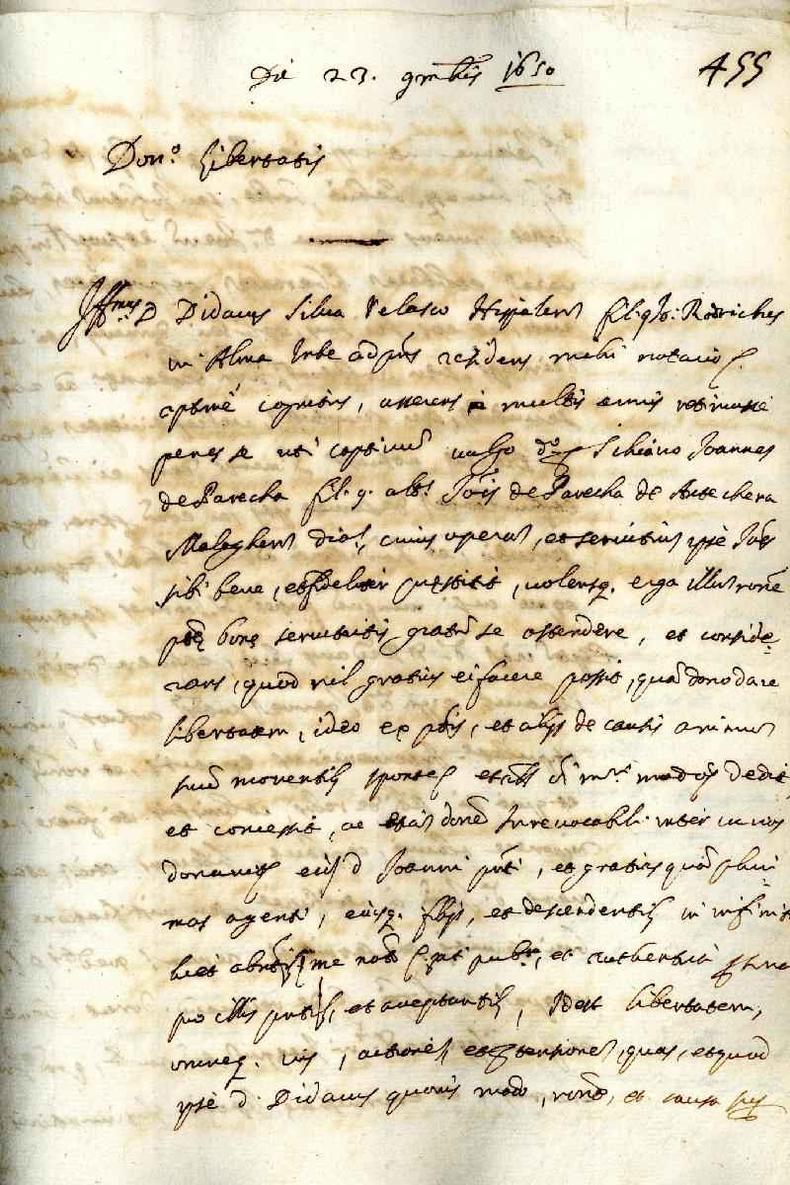 Die 23. 9mbris 1650
455
Don.º Libertatis
Illmus D Didacus Silva Velasco Hispalens fil. q. Rodriches
in Alma Urbe ad pns residens mihi notario
optimè cognitus, asserens à multis annis retinuisse
penes se uti captivum Joannes
de Parecha fil. q. alt. Jois de Parecha de Antechera
Malaghens dioc., cuius opera, et servitus ipse Joes
sibi bene, et fideliter prestitit, volensq. erga illum rone
pte bone servitutis gratum se ostendere, et conside
rans, quod nil gratius ei facere possit, quam dono dare
libertatem, ideo ex ptis, et alijs de causis animum
suum moventib sponte et modis dedit
et concessit, ac donõe Irrevocabli inter vivos
donavit eid Joanni pnti, et gratias quam pluri
mas agenti, eiusq. filijs, et descendentib in infinit
licet absentib me noto pubca, et authentica
pro illis pntib, et acceptantib, Idest libertatem,
omneq. ius, actiones et pretensiones quas, et quod
ipse d. Didacus quovis modo, rone, et causa